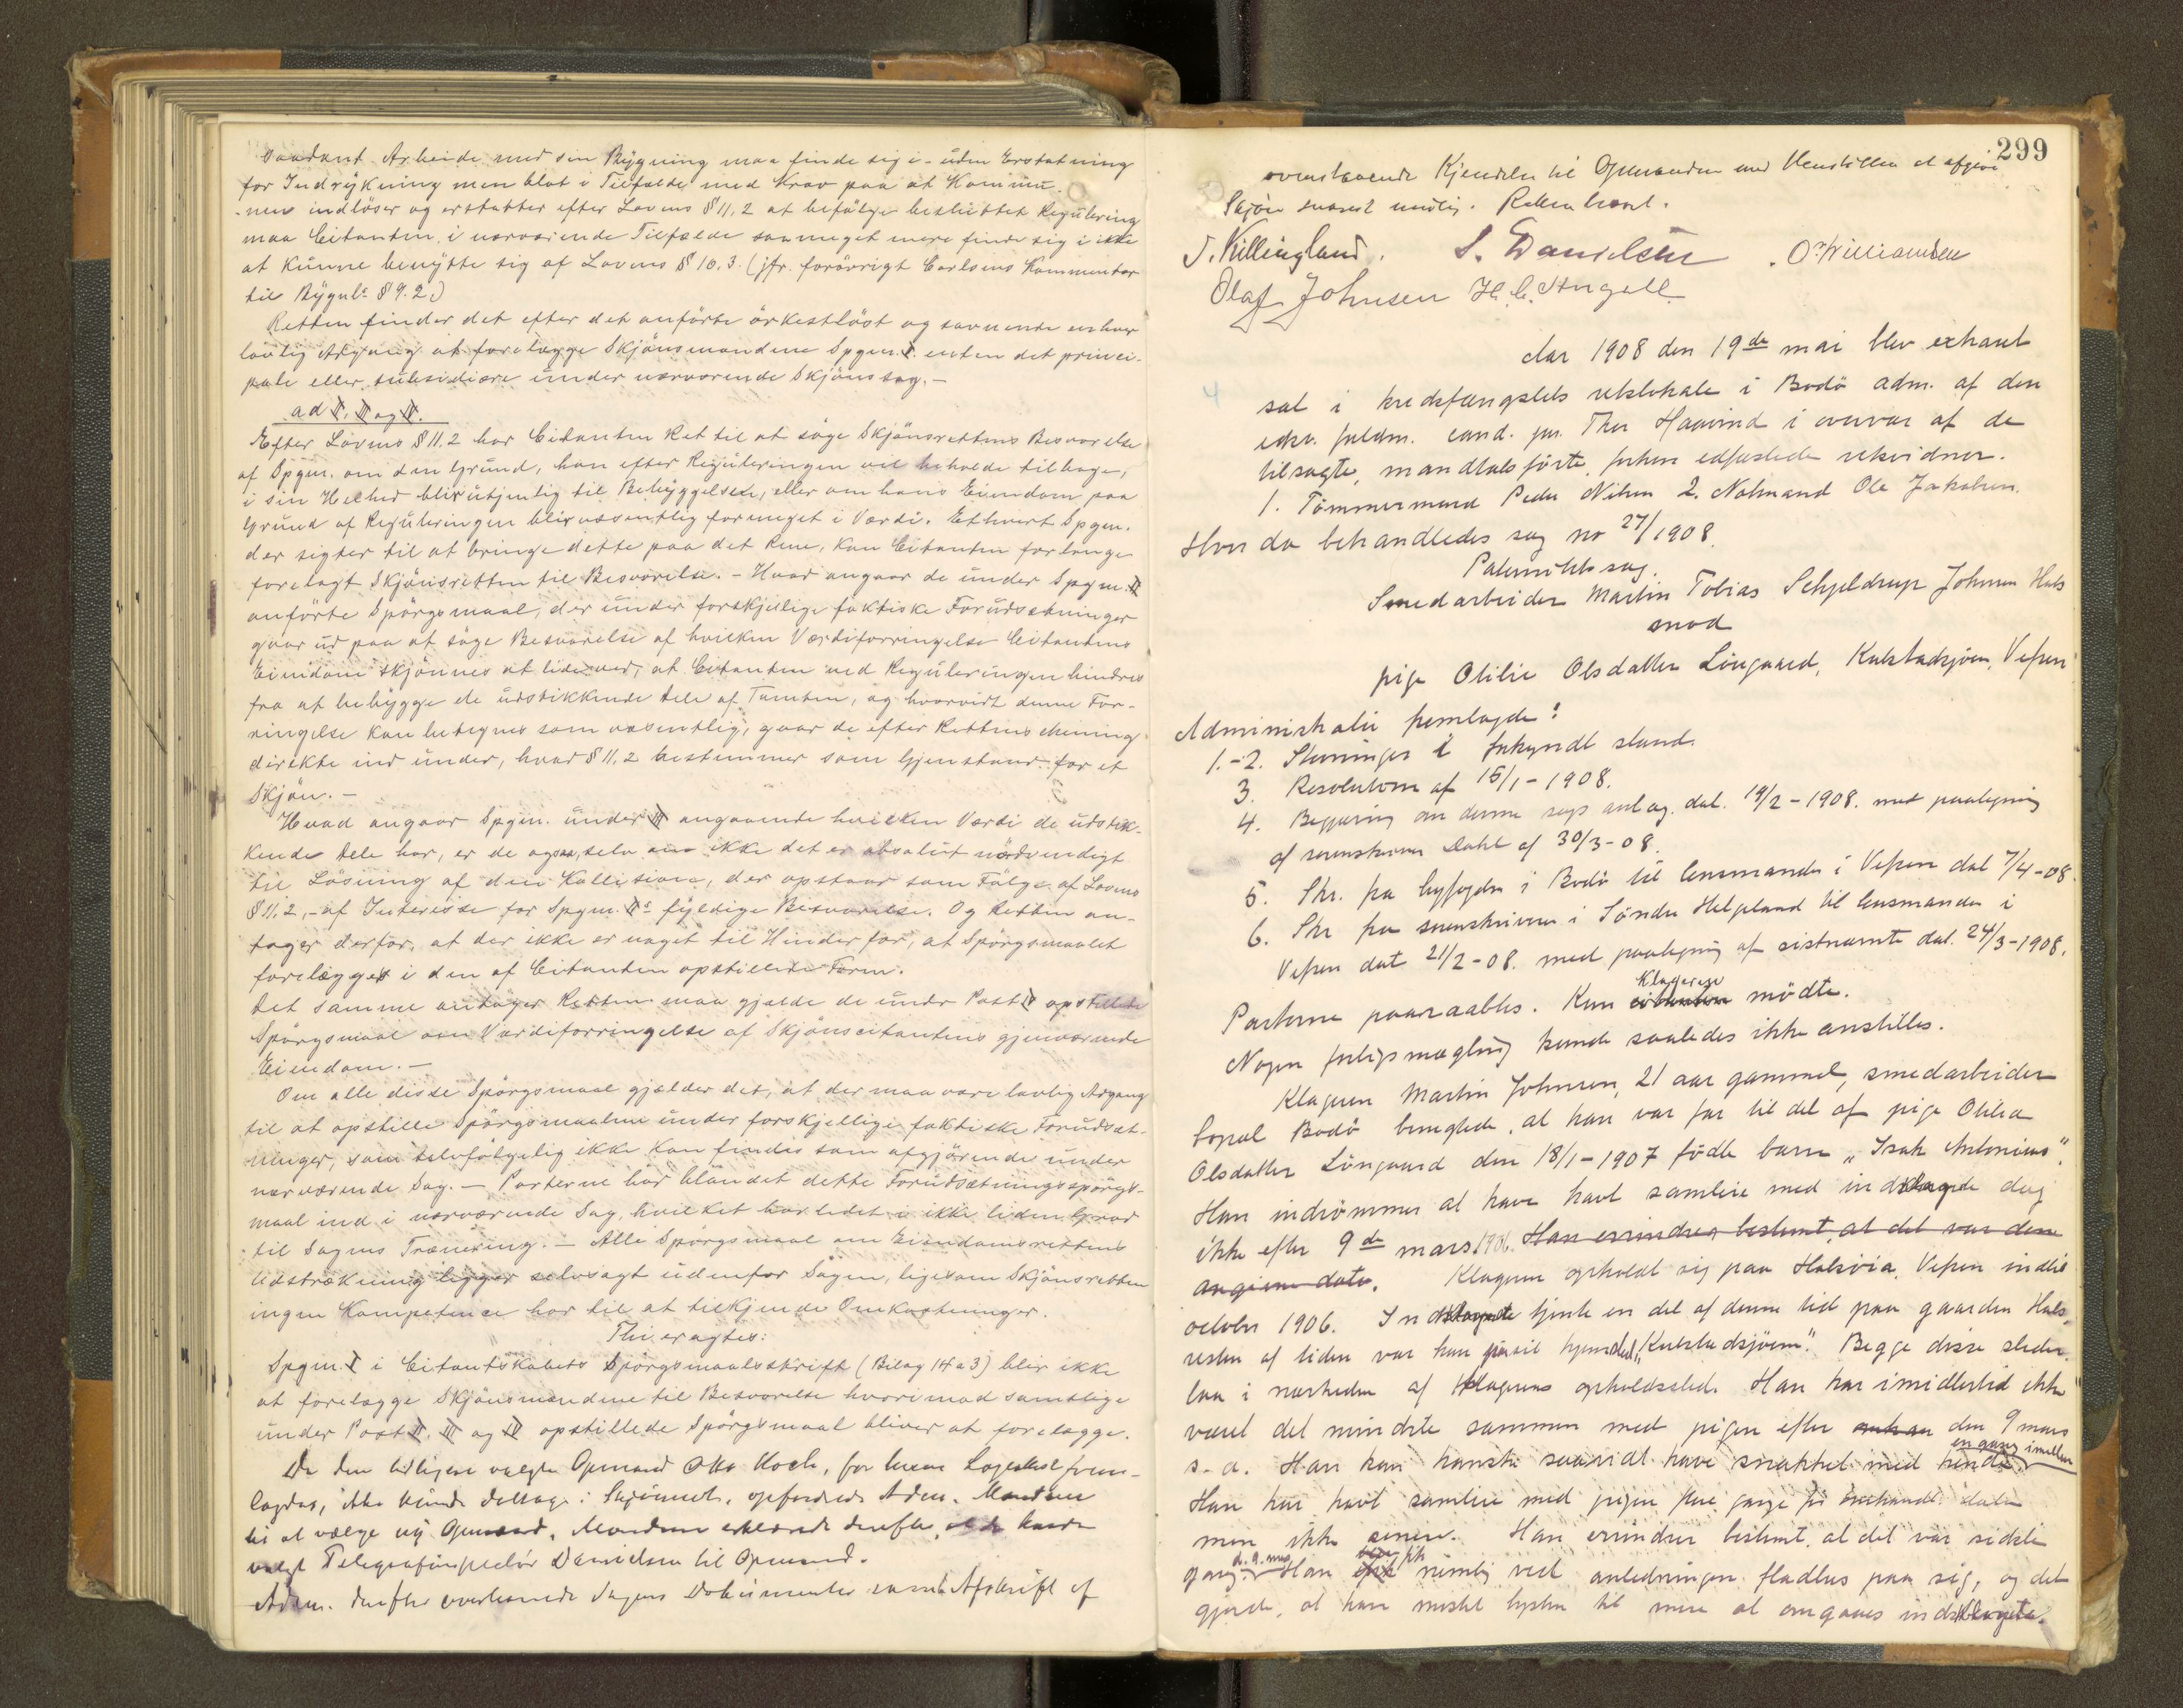 saadant Arbeide med sin Bygning maa finde sig i – uden Erstatning
for Indrykning men blot i Tilfælde med Krav paa at Kommu-
nen indløser og erstatter efter Lovens § 11,2 at befølge besluttet Regulering
maa Citanten i nærværende Tilfælde saameget mere finde sig i ikke
at kunne benytte sig af Lovens § 10.3. (jfr. forøvrigt Carlsens Kommentar
til Bygnl. § 9.2.)
Retten finder det efter det anførte ørkesløst og savnende enhver
lovlig Adgang at forelægge Skjønsmændene Spgm. I. enten det princi-
pale eller subsidiære under nærværende Skjønssag. –
ad II, III og IV.
Efter Lovens § 11.2 har Citanten Ret til at søge Skjønsrettens Besvarelse
af Spgm. om den Grund, han efter Reguleringen vil beholde tilbage,
i sin Helhed blir utjenlig til Bebyggelse, eller om hans Eiendom paa
Grund af Reguleringen blir væsentlig forringet i Værdi. Ethvert Spgm.
der sigter til at bringe dette paa det Rene, kan Citanten forlange
forelagt Skjønsretten til Besvarelse. – Hvad angaar de under Spgm. II
anførte Spørgsmaal, der under forskjellige faktiske Forudsætninger
gaar ud paa at søge Besvarelse af hvilken Værdiforringelse Citantens
Eiendom skjønnes at lide ved, at Citanten ved Reguleringen hindres
fra at bebygge de udstikkende Dele af Tomten, og hvorvidt denne For-
ringelse kan betegnes som væsentlig, gaar de efter Rettens Mening
direkte ind under, hvad § 11.2 bestemmer som Gjenstand for et
Skjøn. –
Hvad angaar Spgm. under III angaaende hvilken Værdi de udstik-
kende Dele har, er de ogsaa, selv om ikke det er absolut nødvendigt
til Løsning af den Kollision, der opstaar som Følge af Lovens
§ 11.2, – af Interesse for Spgm. IIs fyldige Besvarelse. Og Retten an-
tager derfor, at der ikke er noget til Hinder for, at Spørgsmaalet
forelægges i den af Citanten opstillede Form.
Det samme antager Retten maa gjælde de under Post IV opstillede
Spørgsmaal om Værdiforringelse af Skjønscitantens gjenværende
Eiendom. –
Om alle disse Spørgsmaal gjælder det, at der maa være lovlig Adgang
til at opstille Spørgsmaalene under forskjellige faktiske Forudsæt-
ninger, som selvfølgelig ikke kan findes som afgjørende under
nærværende Sag. – Parterne har blandet dette Forudsætningsspørgs-
maal ind i nærværende Sag, hvilket har ledet i ikke liden Grad
til Sagens Trænering. – Alle Spørgsmaal om Eiendomsrettens
Udstrækning ligger selvsagt udenfor Sagen, ligesom Skjønsretten
ingen Kompetence har til at tilkjende Omkostninger.
Thi eragtes:
Spgm. I i Citantskabets Spørgsmaalsskrift (Bilag 14 a 3) blir ikke
at forelægge Skjønsmændene til Besvarelse hvorimod samtlige
under Post II, III og IV opstillede Spørgsmaal bliver at forelægge.
Da den tidligere valgte Opmand Otto Koch, for hvem Lægeattest frem-
lagdes, ikke kunde deltage i Skjønnet, opfordrede Adm. Mændene
til at vælge ny Opmand. Mændene erklærede derefter, at de havde
valgt Telegrafinspektør Danielsen til Opmand.
Adm. derefter overleverede Sagens Dokumenter samt Afskrift af
299
ovenstaaende Kjendelse til Opmanden med Henstillen at afgive
Skjøn snarest mulig. Retten hævet.
J. Killingland. S. Danielsen. O. Williamsen
Olaf Johnsen H. C. Angell
4
Aar 1908 den 19de mai blev extraret
sat i kredsfængslets retslokale i Bodø adm. af den
edsv. fuldm. cand. jur. Thor Haavind i overvær af de
tilsagte, mandtalsførte, forhen edfæstede retsvidner.
1. Tømmermand Peder Nilsen 2. Notmand Ole Jakobsen.
Hvor da behandledes sag no 27/1908.
Paternitetssag.
Smedarbeider Martin Tobias Schjeldrup Johnsen Hals
mod
pige Otilie Olsdatter Lingaard, Kulstadsjøen, Vefsen
Administrator fremlagde:
1.-2. Stevninger i forkyndt stand.
3. Resolution af 15/1-1908.
4. Begjæring om denne sags anlæg. dat. 19/2-1908. med paategning
af sorenskriver Dahl af 30/3-08.
5. Skr. fra byfogden i Bodø til lensmanden i Vefsen dat 7/4-08.
6. Skr fra sorenskriveren i Søndre Helgeland til lensmanden i
Vefsen dat 21/2-08. med paategning af sistnævnte dat. 24/3-1908.
Parterne paaraabtes. Kun Klageren mødte.
Nogen forligsmægling kunde saaledes ikke anstilles.
Klageren Martin Johnsen, 21 aar gammel, smedarbeider
bopæl Bodø benegtede, at han var far til det af pige Otilia
Olsdatter Lingaard den 18/1-1907 fødte barn „Isak Antonius".
Han indrømmer at have havt samleie med indklagede dog
ikke efter 9de mars 1906. Han erindrer bestemt, at det var den
angivne dato. Klageren opholdt sig paa Halsøia, Vefsen indtil
october 1906. Indklagede tjente en del af denne tid paa gaarden Hals,
resten af tiden var hun paa sit hjemsted, „Kulstadsjøen". Begge disse steder
laa i nærheden af Klagerens opholdssted. Han har imidlertid ikke
været det mindste sammen med pigen efter den 9 mars
s. a. Han kan kanske saavidt have snakket med hende en gang imellem
Han har havt samleie med pigen flere gange før omhandl. dato
men ikke senere. Han erindrer bestemt, at det var sidste
gang d. 9. mars Han fik nemlig ved anledningen fladlus paa sig, og det
gjorde, at han mistet lysten til mere at omgaaes indklagede.